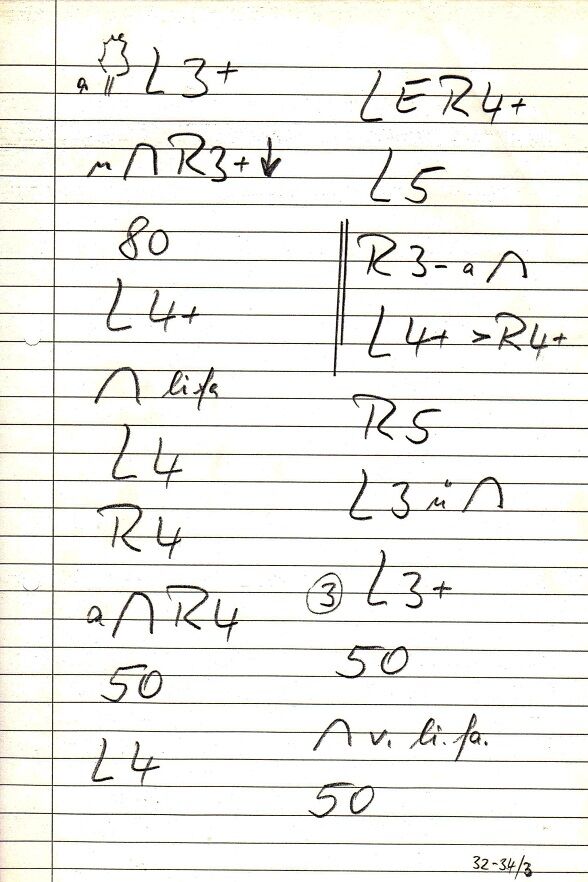 a L3+
R3+ ↓
80
L4+
∩ li.fa
L4
R4
a∩R4
50
L4
LER4+
L5
R3-a∩
L4+ >R4+
R5
L3 ü∩
③ L3+
50
∩ v. li.fa.
50
32-34/3